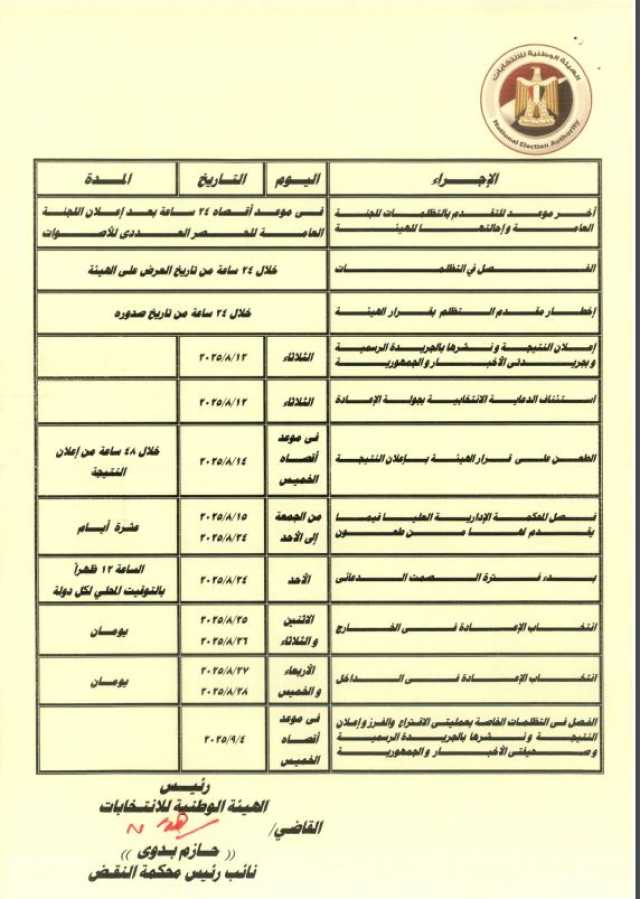 الهيئة الوطنية للانتخابات
National Election Authority
الإجراء اليوم التاريخ المدة
أخر موعد للتقدم بالتظلمات للجنة
العامة وإحالتها للهيئة
فى موعد أقصاه ٢٤ ساعة بعد إعلان اللجنة
العامة للحصر العددى للأصوات
الفصل في التظلمات
خلال ٢٤ ساعة من تاريخ العرض على الهيئة
إخطار مقدم التظلم بقرار الهيئة
خلال ٢٤ ساعة من تاريخ صدوره
إعلان النتيجة و نشرها بالجريدة الرسمية
و بجريدتى الأخبار و الجمهورية
الثلاثاء
٢٠٢٥/٨/١٢
استئناف الدعاية الانتخابية بجولة الإعادة
الثلاثاء
٢٠٢٥/٨/١٢
الطعن على قرار الهيئة بإعلان النتيجة
فى موعد
أقصاه
الخميس
٢٠٢٥/٨/١٤
خلال ٤٨ ساعة من إعلان
النتيجة
فصل المحكمة الإدارية العليا فيما
يقدم لها من طعون
من الجمعة
إلى الأحد
٢٠٢٥/٨/١٥
٢٠٢٥/٨/٢٤
عشرة أيام
بدء فترة الصمت الدعائى
الأحد
٢٠٢٥/٨/٢٤
الساعة ١٢ ظهراً
بالتوقيت المحلي لكل دولة
انتخاب الإعادة فى الخارج
الاثنين
و الثلاثاء
٢٠٢٥/٨/٢٥
٢٠٢٥/٨/٢٦
يومان
انتخاب الإعادة فى الداخل
الأربعاء
و الخميس
٢٠٢٥/٨/٢٧
٢٠٢٥/٨/٢٨
يومان
الفصل فى التظلمات الخاصة بعمليتى الاقتراع والفرز وإعلان
النتيجة و نشرها بالجريدة الرسمية
و صحيفتى الأخبار و الجمهورية
فى موعد
أقصاه
الخميس
٢٠٢٥/٩/٤
رئيس
الهيئة الوطنية للانتخابات
القاضي/
(( حازم بدوى ))
نائب رئيس محكمة النقض